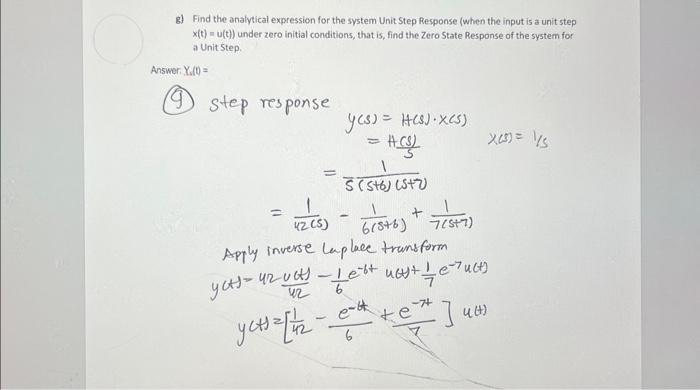 g) Find the analytical expression for the system Unit Step Response (when the input is a unit step
x(t) = u(t)) under zero initial conditions, that is, find the Zero State Response of the system for
a Unit Step.
Answer: Yₛ(t) =
(g) step response
y(s) = H(s)·X(s)
= H(s)/S X(s) = 1/s
= 1/(S(S+6)(S+7))
= 1/(42(S)) - 1/(6(S+6)) + 1/(7(S+7))
Apply inverse Laplace transform
y(t) = 42 u(t)/42 - 1/6 e^-6t u(t) + 1/7 e^-7 u(t)
y(t) = [1/42 - e^-6t/6 + e^-7t/7] u(t)